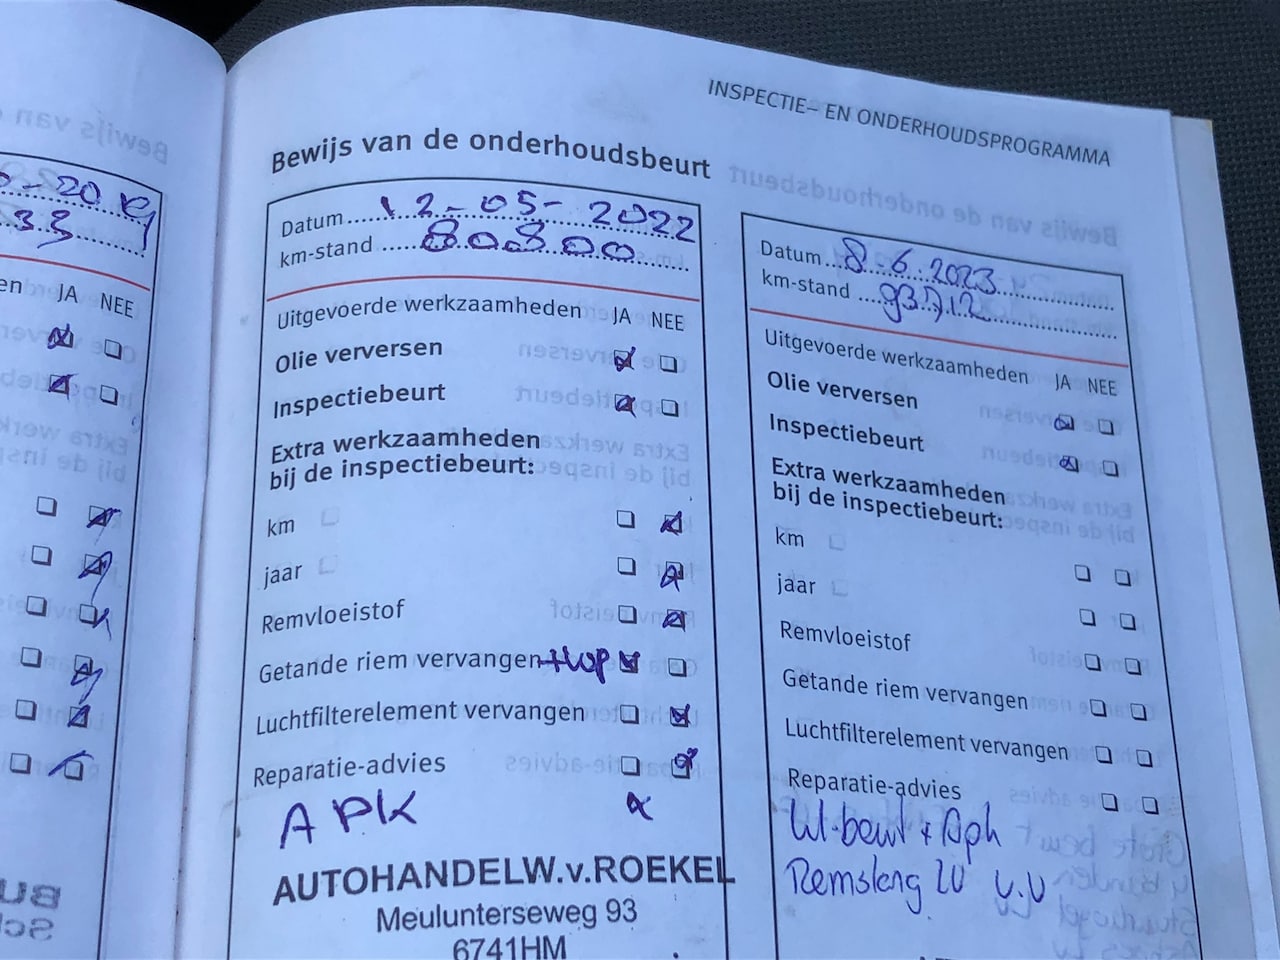 INSPECTIE– EN ONDERHOUDSPROGRAMMA
33
JA NEE
Bewijs van de onderhoudsbeurt
Datum 12-05-2022
km-stand 80.800
Uitgevoerde werkzaamheden JA NEE
Olie verversen
Inspectiebeurt
Extra werkzaamheden
bij de inspectiebeurt:
km
jaar
Remvloeistof
Getande riem vervangen +WP
Luchtfilterelement vervangen
Reparatie-advies
APK
AUTOHANDELW.v.ROEKEL
Meulunterseweg 93
6741HM
Datum 8.6.2023
km-stand 93712
Uitgevoerde werkzaamheden JA NEE
Olie verversen
Inspectiebeurt
Extra werkzaamheden
bij de inspectiebeurt:
km
jaar
Remvloeistof
Getande riem vervangen
Luchtfilterelement vervangen
Reparatie-advies
beurt + Apk
Remslang